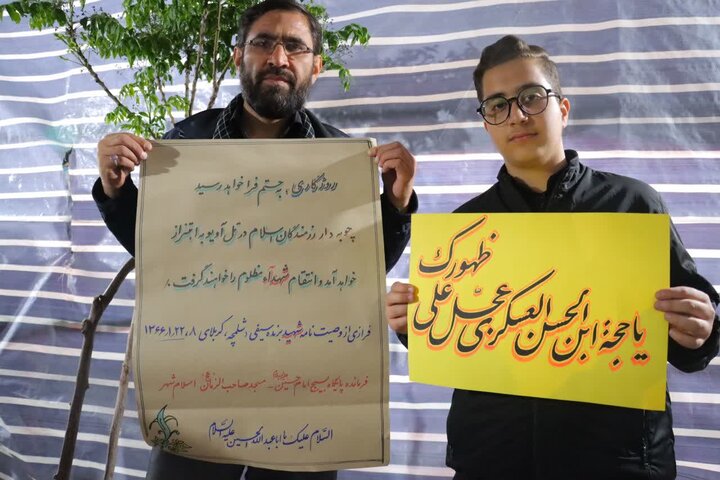 روزگاری، پرچم فرا خواهد رسید
چوبه دار رزمندگان اسلام در تل آویو به اهتزاز
خواهد آمد و انتقام شهیداه مظلوم را خواهند گرفت.
فرازی از وصیت نامه شهید سیفی، شلمچه، کربلای ۸، ۱۳۶۶,۱,۲۲
فرمانده پایگاه بسیج امام حسین - مسجد صاحب الزمان اسلام شهر
السلام علیک یا اباعبدالله الحسین علیه السلام
یا حجة ابن الحسن العسکری عجل علی ظهورک